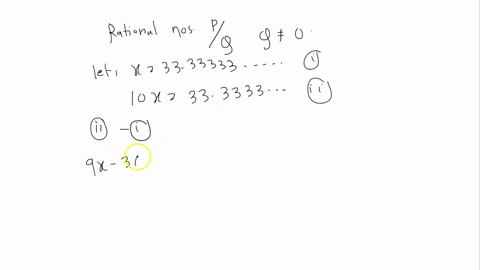 Rational nos. P/Q Q ≠ 0.
let, x = 33.33333..... (i)
10x = 33.3333... (ii)
(ii) - (i)
9x - 30